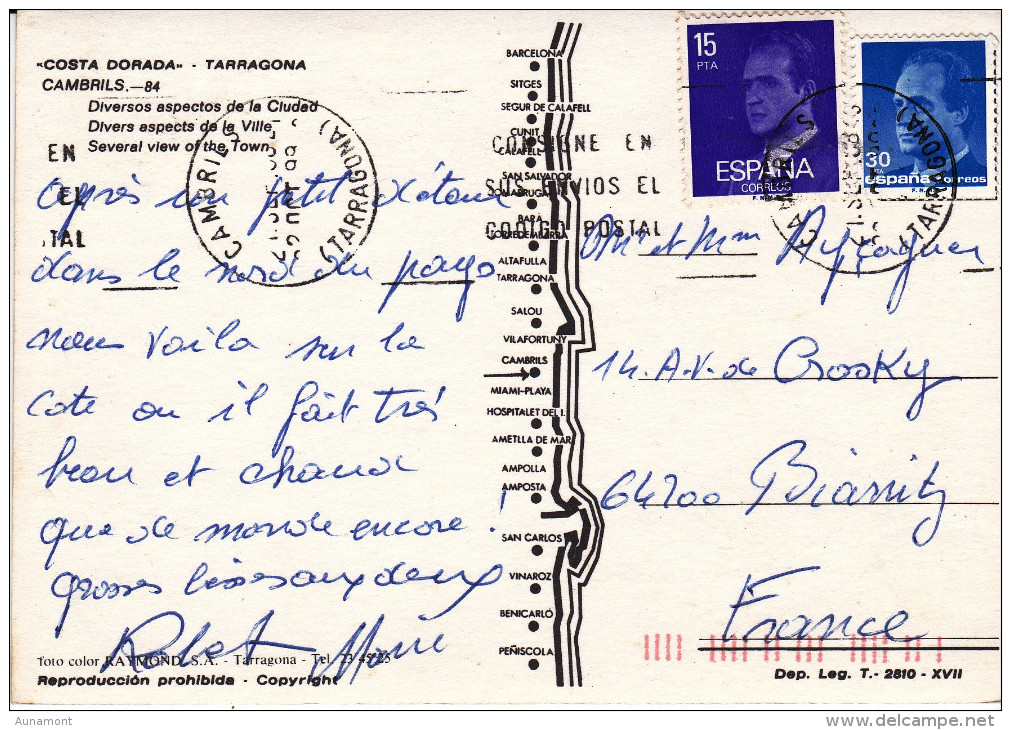 "COSTA DORADA" - TARRAGONA
CAMBRILS.—84
Diversos aspectos de la Ciudad
Divers aspects de la Ville
Several view of the Town
EN
EL
TAL
CAMBRILS
(TARRAGONA)
après un petit détour
dans le nord du pays
nous voila sur la
cote ou il fait très
beau et chaud
que de monde encore !
grosses bises aux deux
Foto color RAYMOND, S.A. - Tarragona - Tel. 23 45 25
Reproducción prohibida - Copyright
BARCELONA
SITGES
SEGUR DE CALAFELL
CUNIT
CALAFELL
SAN SALVADOR
COMARRUGA
BARA
TORREDEMBARRA
ALTAFULLA
TARRAGONA
SALOU
VILAFORTUNY
CAMBRILS
MIAMI-PLAYA
HOSPITALET DEL I.
AMETLLA DE MAR
AMPOLLA
AMPOSTA
SAN CARLOS
VINAROZ
BENICARLÓ
PEÑISCOLA
CONSIGNE EN
SUS ENVIOS EL
CODIGO POSTAL
15
PTA
ESPAÑA
CORREOS
30
PTA
españa correos
CAMBRILS
(TARRAGONA)
Mr et Mme
14. A.V. de Crosky
64200 Biarritz
France
Dep. Leg. T.- 2810 - XVII
Aunamont
www.delcampe.net